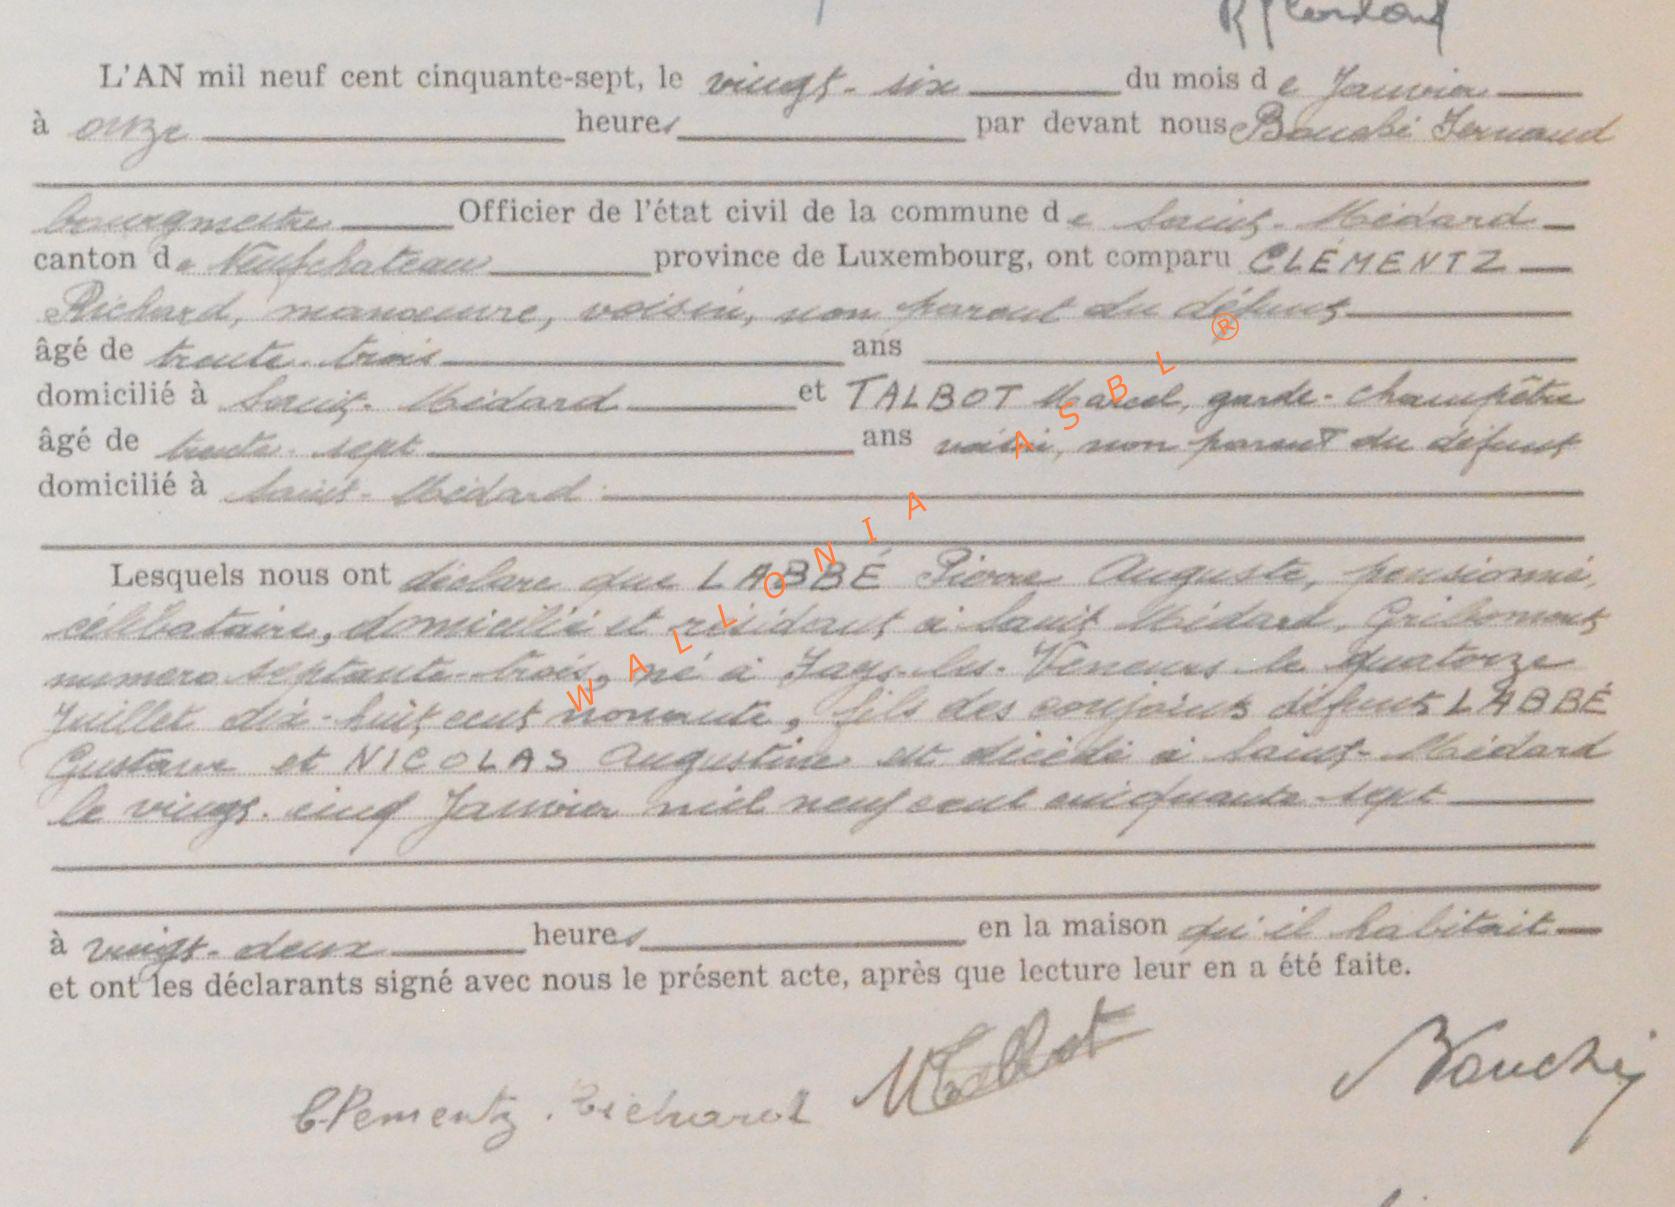 L'AN mil neuf cent cinquante-sept, le vingt-six du mois de Janvier
à onze heures par devant nous Bouché Fernand
bourgmestre Officier de l'état civil de la commune de Saint-Médard
canton de Neufchateau province de Luxembourg, ont comparu CLÉMENTZ
Richard, manœuvre, voisin, non parent du défunt
âgé de trente-trois ans
domicilié à Saint-Médard et TALBOT Marcel, garde-champêtre
âgé de trente-sept ans voisin, non parent du défunt
domicilié à Saint-Médard
Lesquels nous ont déclaré que LABBÉ Pierre Auguste, pensionné,
célibataire, domicilié et résidant à Saint Médard, Gribomont,
numero septante-trois, né à Fays-les-Veneurs le quatorze
Juillet dix-huit cent nonante, fils des conjoints défunts LABBÉ
Gustave et NICOLAS Augustine est décédé à Saint-Médard
le vingt-cinq Janvier mil neuf cent cinquante-sept
à vingt-deux heures en la maison qu'il habitait
et ont les déclarants signé avec nous le présent acte, après que lecture leur en a été faite.
Clementz Richard MTalbot Bouché
WALLONIA ASBL ®